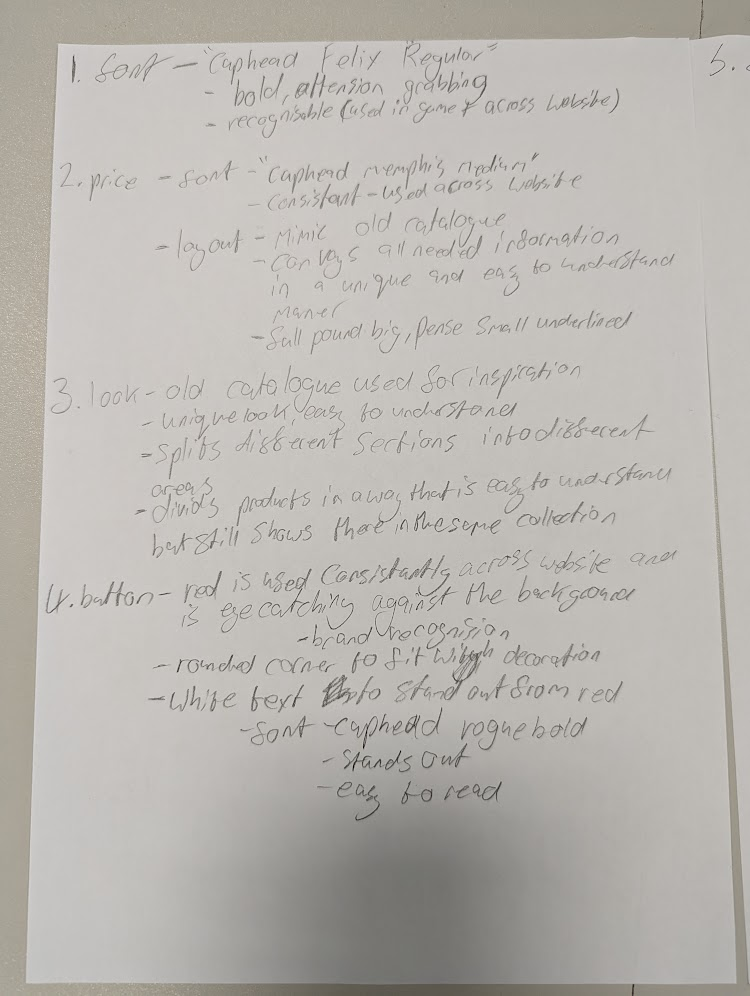 1. font - "Cuphead Felix Regular"
- bold, attension grabbing
- recognisable (used in game & across website)
2. price - font - "Cuphead memphis medium"
- Consistant - used across website
- layout - Mimic old catalogue
- convays all needed information
in a unique and easy to understand
maner
- full pound big, pense small underlined
3. look - old catalogue used for inspiration
- unique look, easy to understand
- splits different sections into different
areas
- divids products in a way that is easy to understand
but still shows there in the same collection
4. button - red is used Consistantly across website and
is eye catching against the background
- brand recognision
- rounded corner to fit with decoration
- White text to stand out from red
- font - cuphead vogue bold
- stands out
- easy to read
5.